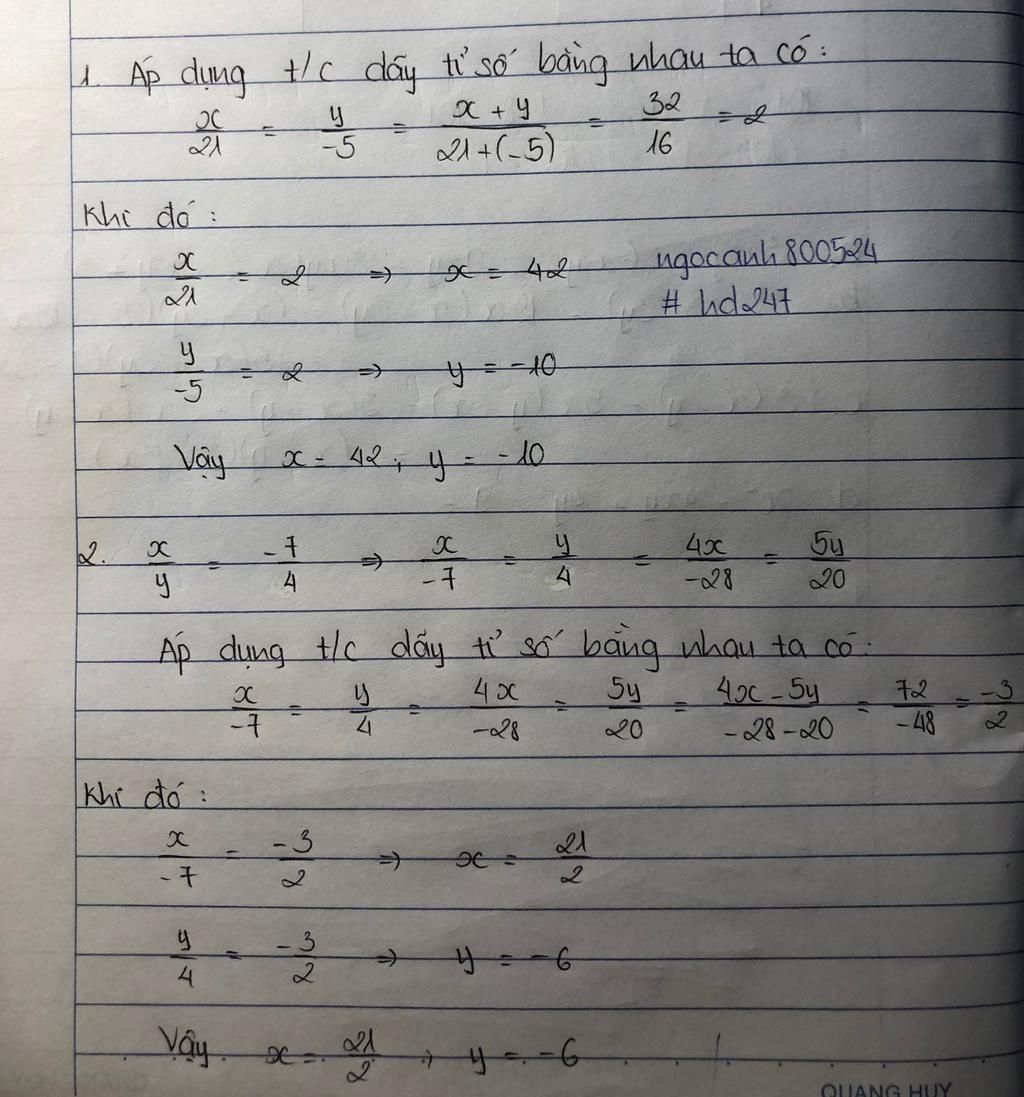 1. Áp dụng t/c dãy tỉ số bằng nhau ta có:
x/21 = y/-5 = (x + y)/(21+(-5)) = 32/16 = 2
Khi đó:
x/21 = 2 => x = 42
ngocanh800524
# hd247
y/-5 = 2 => y = -10
Vậy x = 42; y = -10
2. x/y = -7/4 => x/-7 = y/4 = 4x/-28 = 5y/20
Áp dụng t/c dãy tỉ số bằng nhau ta có:
x/-7 = y/4 = 4x/-28 = 5y/20 = (4x - 5y)/(-28-20) = 72/-48 = -3/2
Khi đó:
x/-7 = -3/2 => x = 21/2
y/4 = -3/2 => y = -6
Vậy x = 21/2; y = -6
QUANG HUY